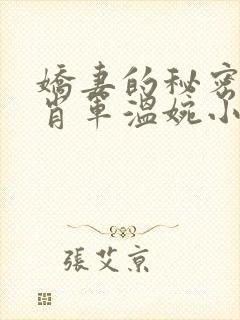 嬌妻的秘密
肖軍溫婉小
張艾京